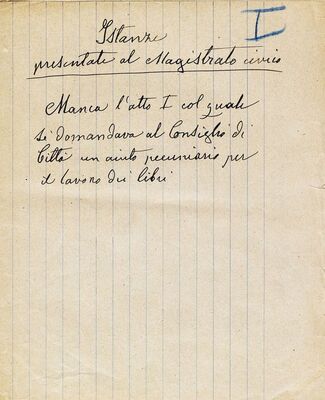 I
Istanze
presentate al Magistrato civico
Manca l'atto I col quale
si domandava al Consiglio di
Città un aiuto pecuniario per
il lavoro dei libri